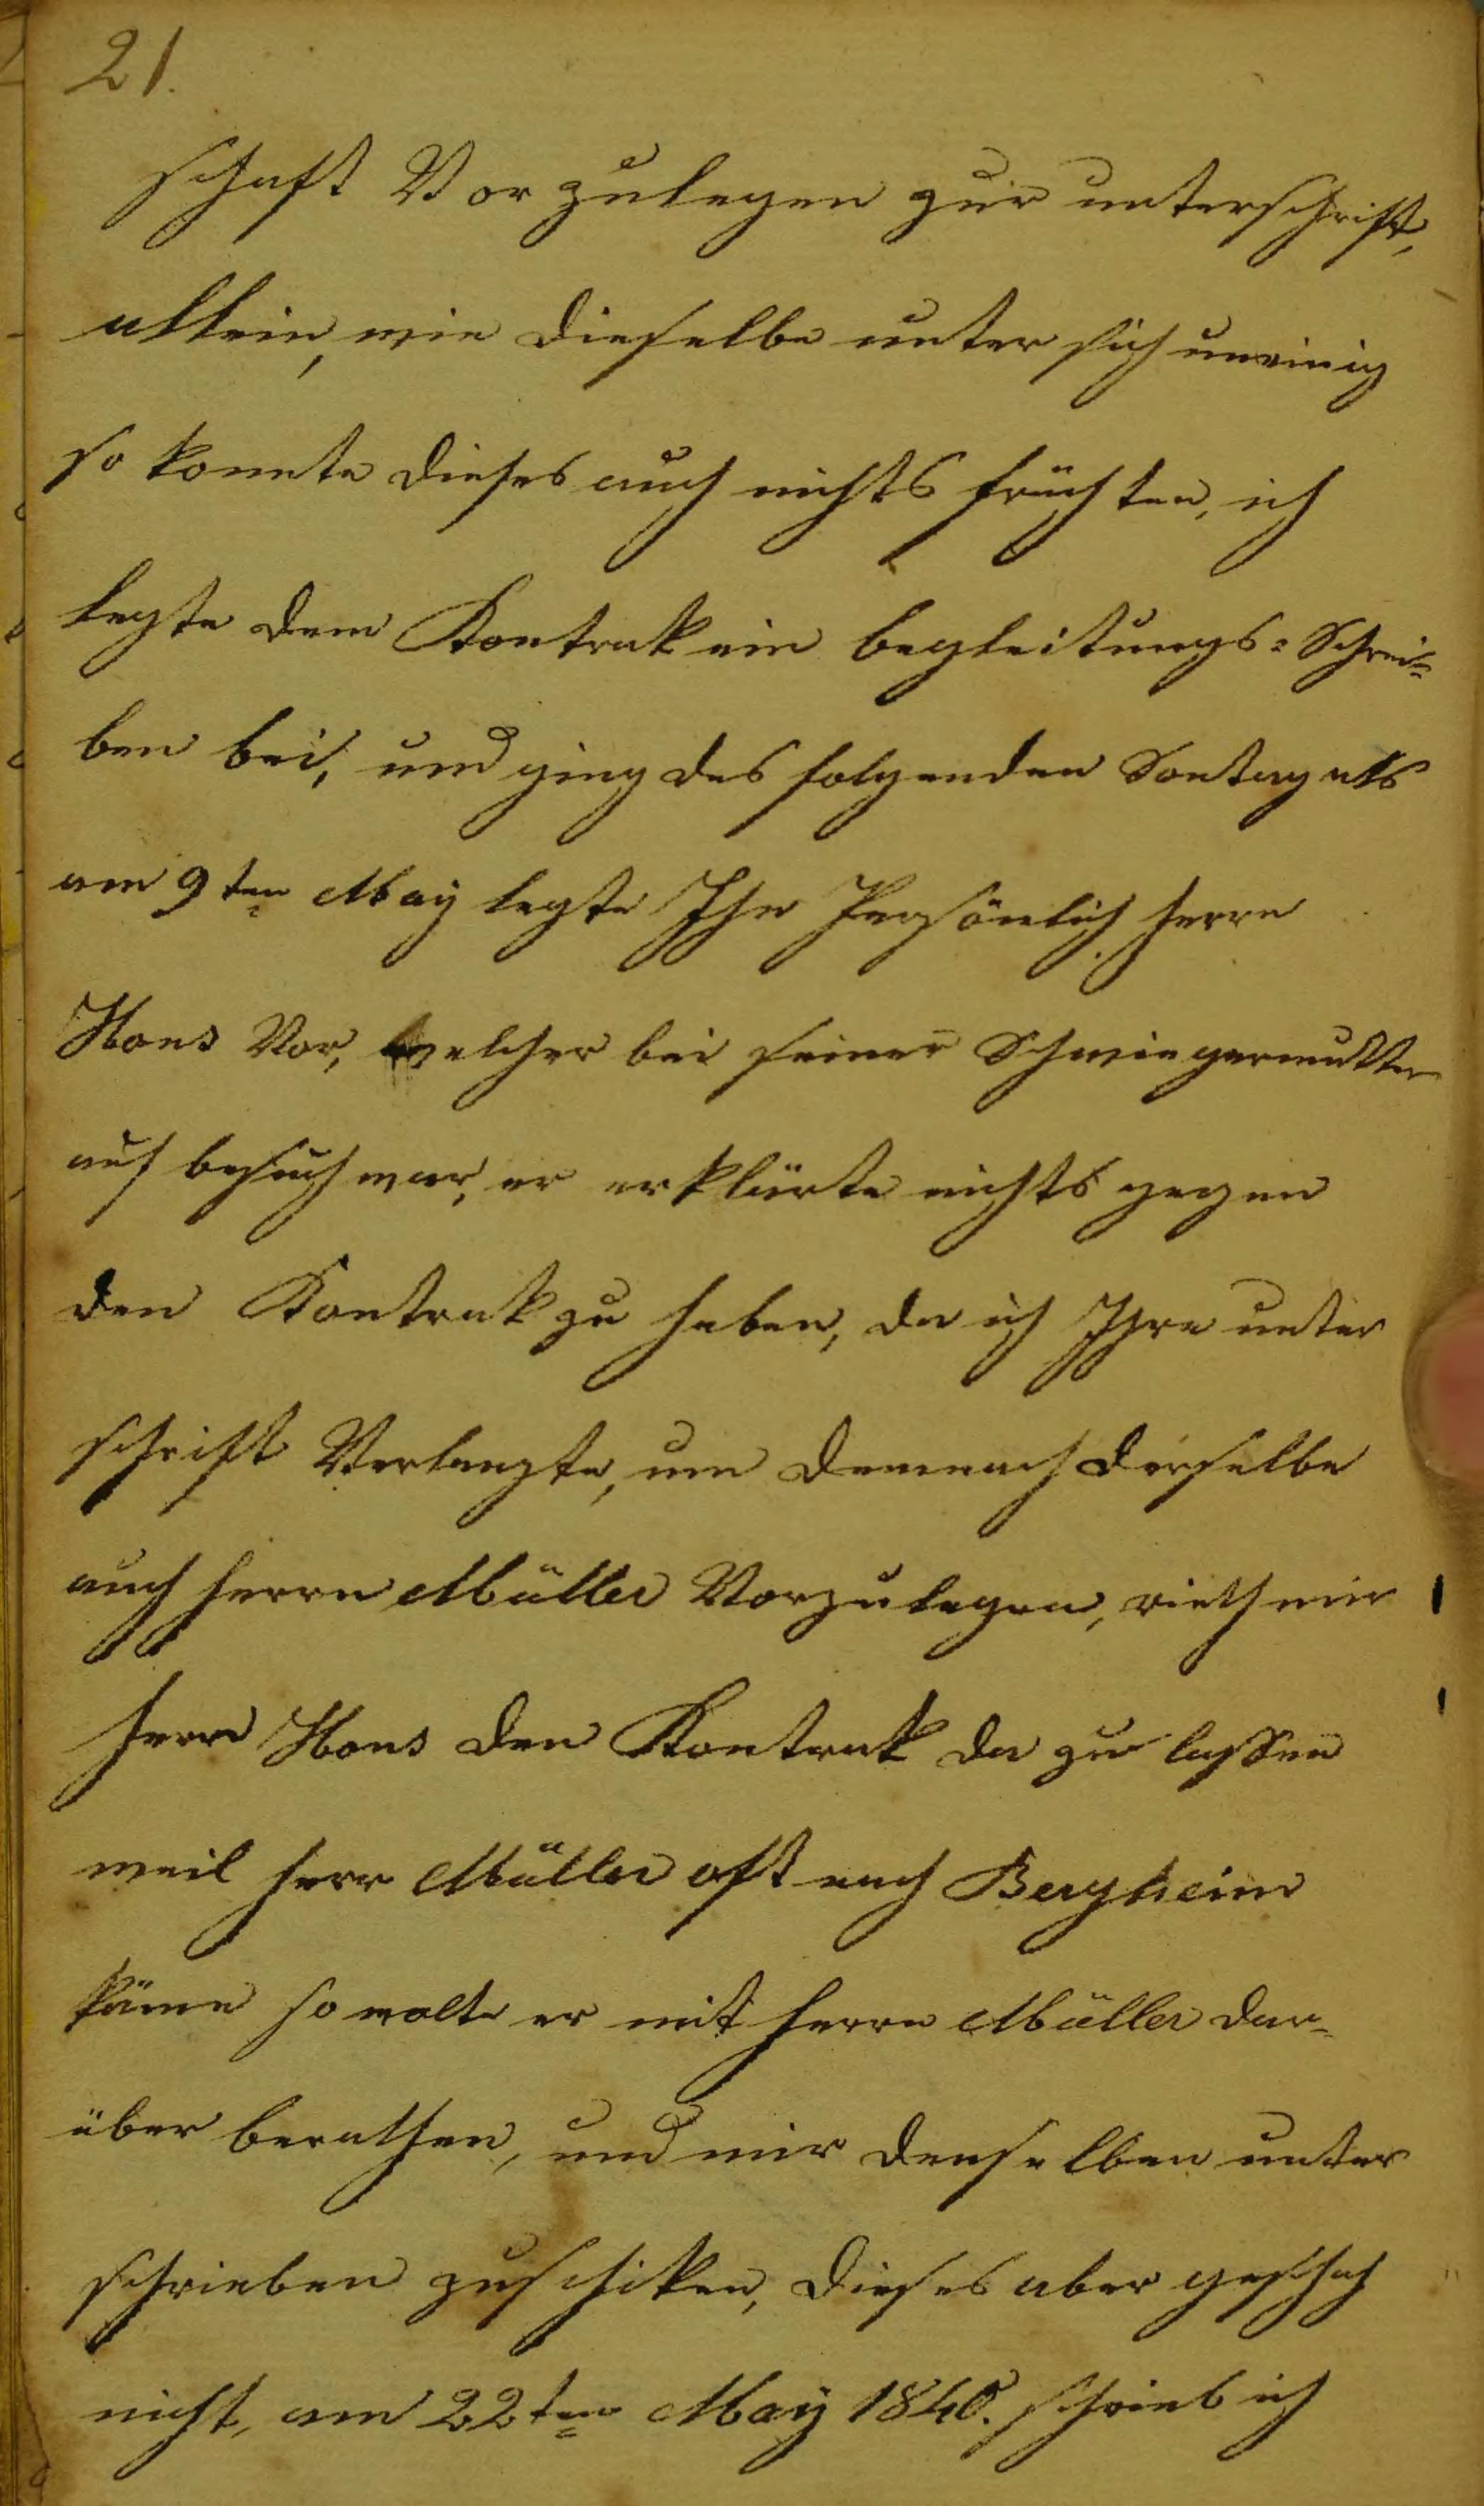 21.
schaft Vor zulegen zur unterschrift,
allein, wie dieselbe unter sich uneinig
so konnte dieses auch nichts früchten, ich
legte dem Kontrak ein begleitungs=Schrei=
ben bei, und ging des folgenden Sontag als
am 9ten May legte Ihn Persönlich herrn
Hons Vor, welcher bei seiner Schwiegermutter
auf besuch war, er erklärte nichts gegen
den Kontrak zu haben, da ich Ihre unter
schrift Verlangte, um demnach dieselbe
auch herrn Müller Vorzulegen, rieth mir
herr Hons den Kontrak da zu lassen
weil herr Müller oft nach Bergheim
käme so wolte er mit herrn Müller dar=
über berathen, und mir denselben unter
schrieben zuschiken, dieses aber geschah
nicht, am 22ten May 1840. schrieb ich